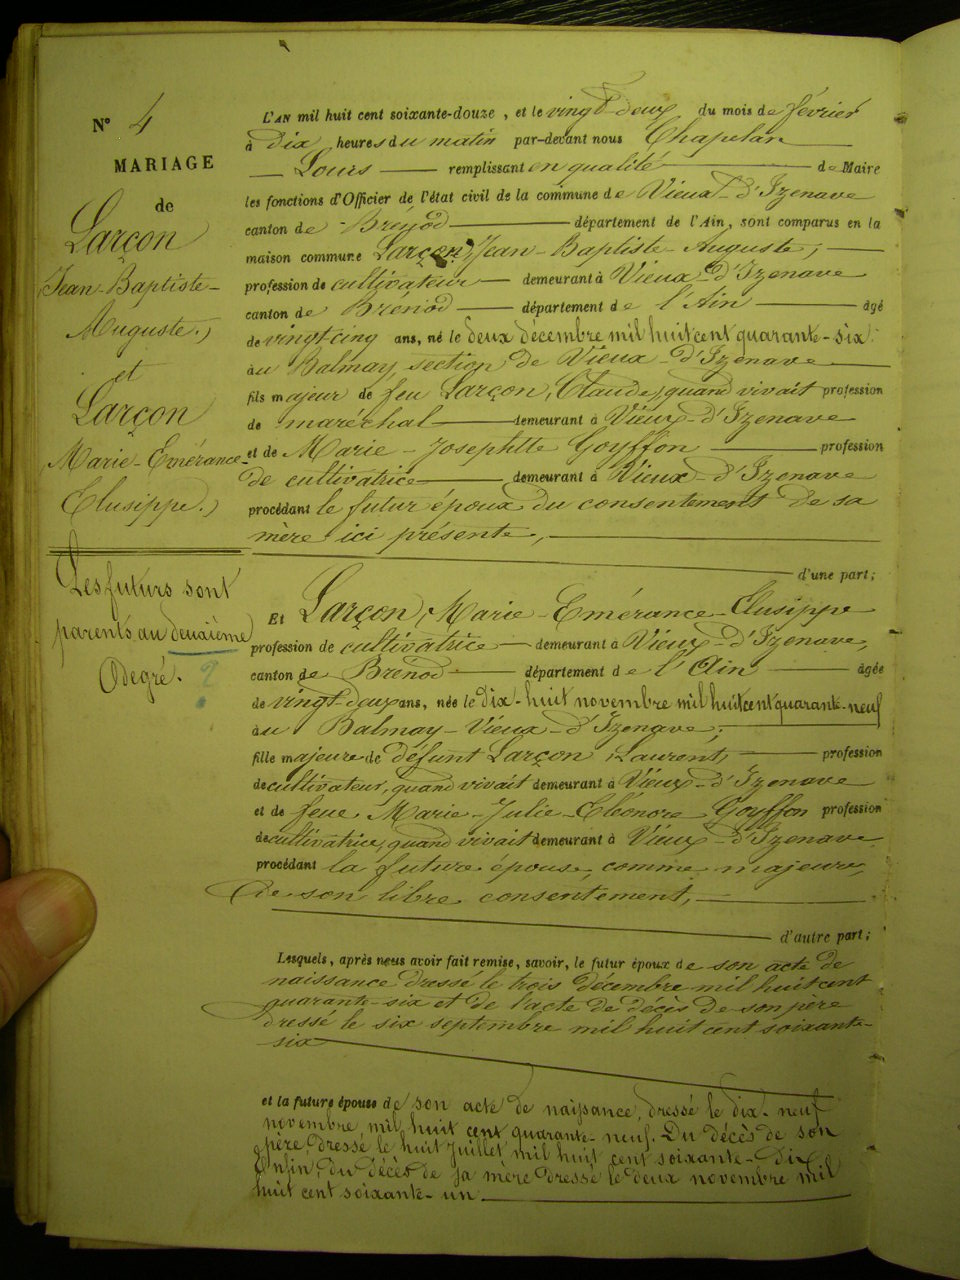 N° 4
MARIAGE
de
Larçon
(Jean-Baptiste-
Auguste.)
et
Larçon
(Marie-Emérance-
Elusippe.)
Les futurs sont
parents au deuxième
degré.
?
L'AN mil huit cent soixante-douze, et le vingt-deux du mois de février
à dix heures du matin par-devant nous Chapelan
Louis remplissant en qualité de Maire
les fonctions d'Officier de l'état civil de la commune de Vieux-d'Izenave
canton de Brénod département de l'Ain, sont comparus en la
maison commune Larçon, Jean-Baptiste-Auguste,
profession de cultivateur demeurant à Vieux-d'Izenave
canton de Brénod département de l'Ain âgé
de vingt-cinq ans, né le deux décembre mil huit cent quarante-six
au Balmay, section de Vieux-d'Izenave
fils majeur de feu Larçon, Claude, quand vivait profession
de maréchal demeurant à Vieux-d'Izenave
et de Marie-Josephtte Goyffon profession
de cultivatrice demeurant à Vieux-d'Izenave
procédant le futur époux du consentement de sa
mère ici présente,
d'une part;
Et Larçon, Marie-Emérance-Elusippe
profession de cultivatrice demeurant à Vieux-d'Izenave,
canton de Brénod département de l'Ain âgée
de vingt-deux ans, née le dix-huit novembre mil huit cent quarante-neuf
au Balmay-Vieux-d'Izenave,
fille majeure de défunt Larçon Laurent, profession
de cultivateur, quand vivait demeurant à Vieux-d'Izenave
et de feue Marie-Julie-Eléonore Goyffon profession
de cultivatrice, quand vivait demeurant à Vieux-d'Izenave
procédant la future épouse, comme majeure,
de son libre consentement,
d'autre part;
Lesquels, après nous avoir fait remise, savoir, le futur époux de son acte de
naissance dressé le trois décembre mil huit cent
quarante-six et de l'acte de décès de son père
dressé le six septembre mil huit cent soixante-
six
et la future épouse de son acte de naissance, dressé le dix-neuf
novembre mil huit cent quarante-neuf. Du décès de son
père, dressé le huit Juillet mil huit cent soixante-dix
Enfin, du décès de sa mère dressé le deux novembre mil
huit cent soixante-un